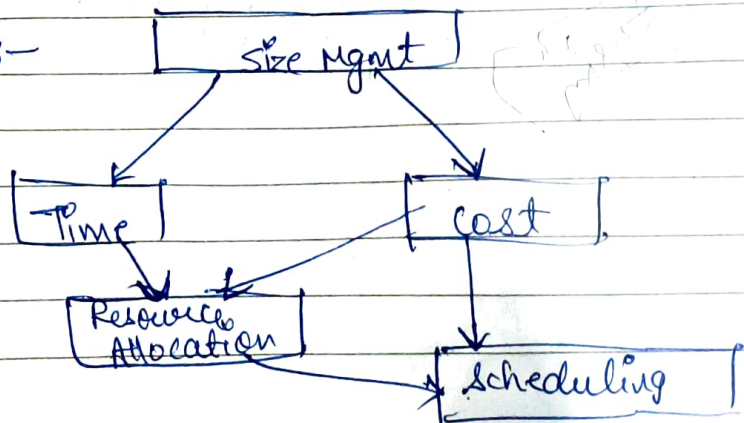 Size Mgmt
Time
Cost
Resource
Allocation
Scheduling